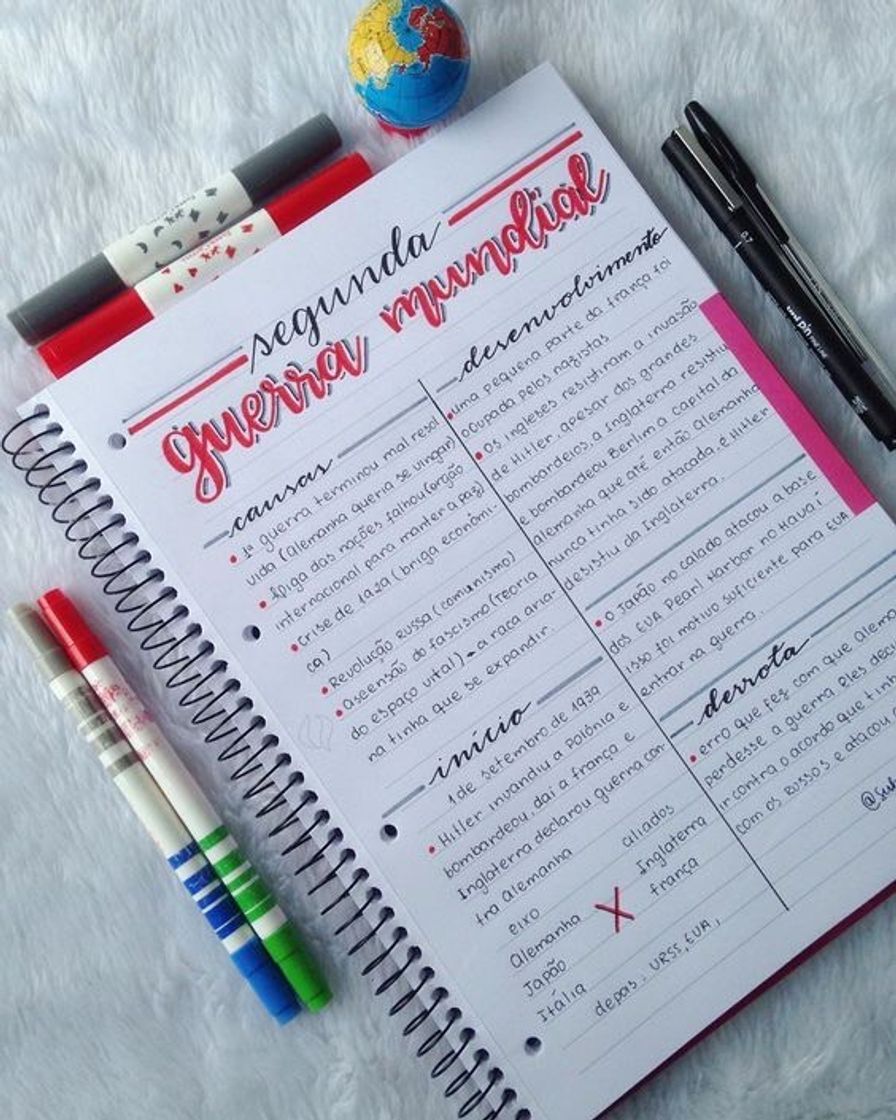 segunda
guerra mundial
causas
• 1ª guerra terminou mal resol
vida (alemanha queria se vingar)
• A liga das nações falhou (orgão
internacional para manter a paz)
• crise de 1929 (briga econômi-
ca)
• Revolução Russa (comunismo)
• ascensão do fascismo (teoria
do espaço vital) → a raça aria-
na tinha que se expandir.
início
1 de setembro de 1939
• Hitler invandiu a Polônia e
bombardeou, daí a frança e
Inglaterra declarou guerra con-
tra alemanha
eixo X aliados
Alemanha Inglaterra
Japão frança
Itália
depois: URSS, EUA,
desenvolvimento
• uma pequena parte da frança foi
ocupada pelos nazistas
• Os ingleses resistiram a invasão
de Hitler, apesar dos grandes
bombardeios, a Inglaterra resistiu
e bombardeou Berlim a capital da
alemanha que até então alemanha
nunca tinha sido atacada, e Hitler
desistiu da Inglaterra.
• O Japão no calado atacou a base
dos EUA Pearl Harbor no Havaí
isso foi motivo suficiente para EUA
entrar na guerra.
derrota
• erro que fez com que alem
pendesse a guerra Eles deci
ir contra o acordo que tin
com os Russos e atacou
0.7
uni pin FINE LINE